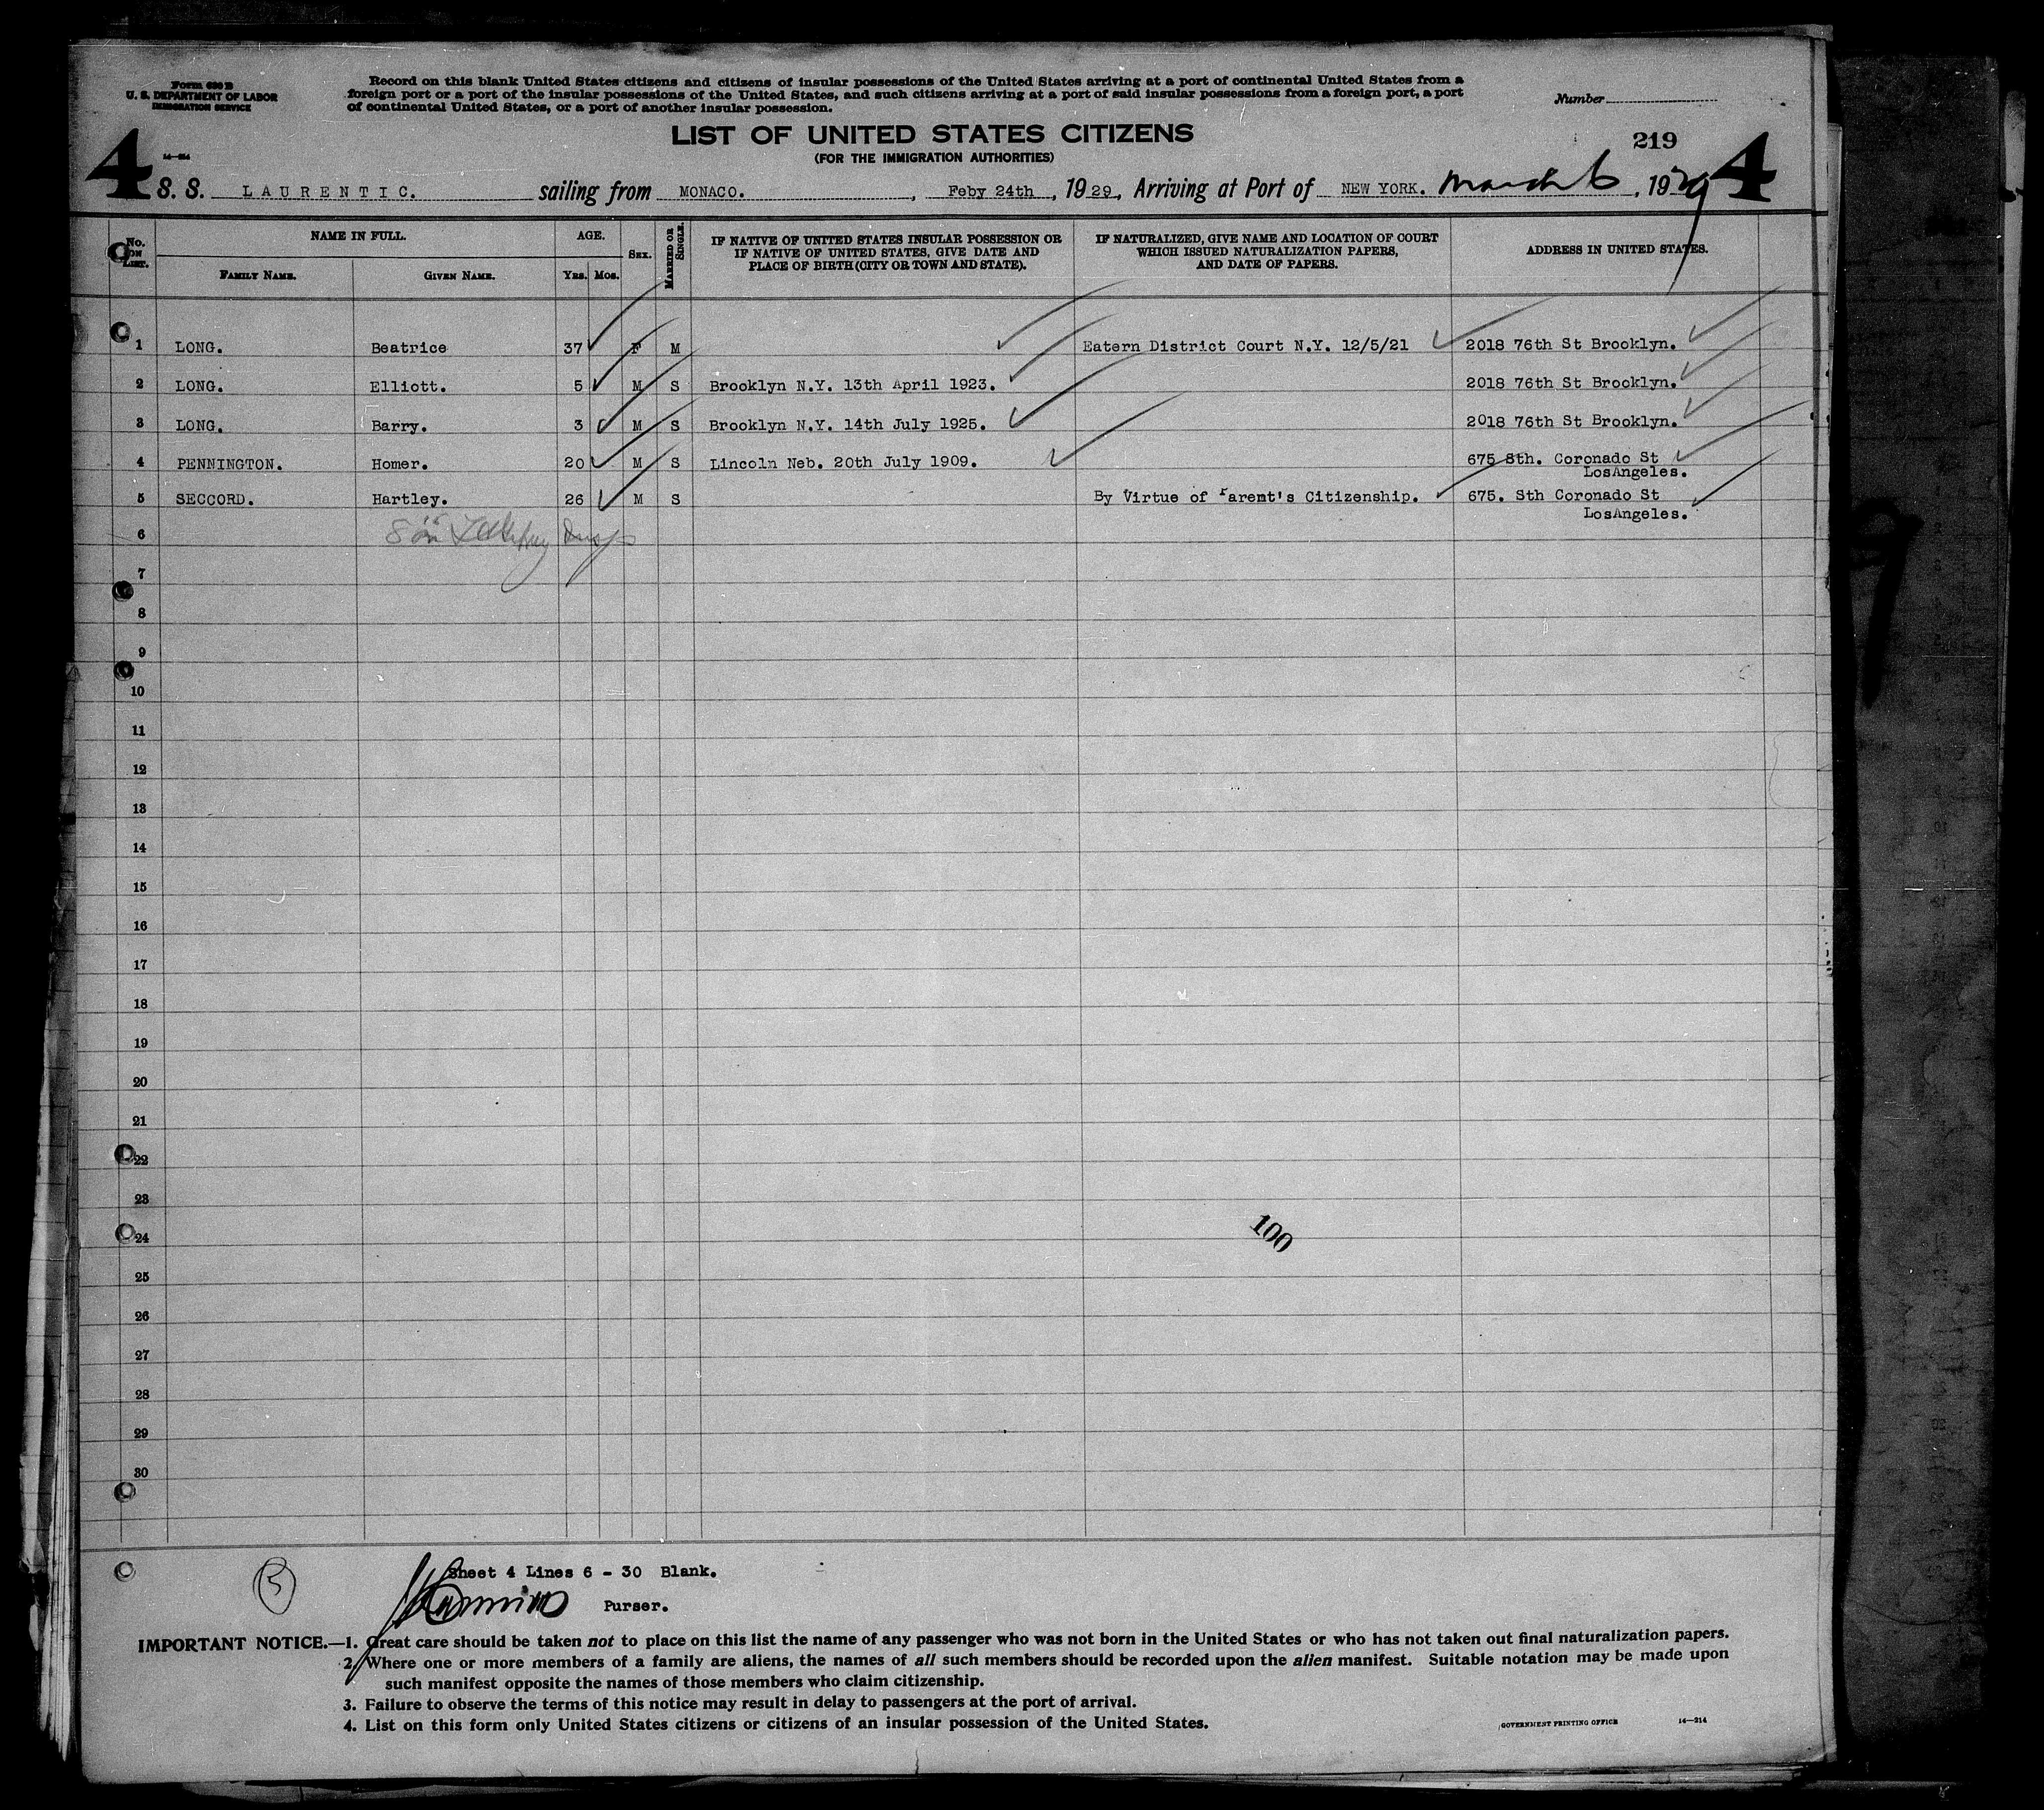 Form 630 B
U. S. DEPARTMENT OF LABOR
IMMIGRATION SERVICE
Record on this blank United States citizens and citizens of insular possessions of the United States arriving at a port of continental United States from a
foreign port or a port of the insular possessions of the United States, and such citizens arriving at a port of said insular possessions from a foreign port, a port
of continental United States, or a port of another insular possession.
Number
LIST OF UNITED STATES CITIZENS
(FOR THE IMMIGRATION AUTHORITIES)
219
4 14—214 4
S. S. LAURENTIC. sailing from MONACO. , Feby 24th , 19 29, Arriving at Port of NEW YORK. March 6 , 1929
No. ON LIST. NAME IN FULL. AGE. SEX. MARRIED OR SINGLE. IF NATIVE OF UNITED STATES INSULAR POSSESSION OR IF NATIVE OF UNITED STATES, GIVE DATE AND PLACE OF BIRTH (CITY OR TOWN AND STATE). IF NATURALIZED, GIVE NAME AND LOCATION OF COURT WHICH ISSUED NATURALIZATION PAPERS, AND DATE OF PAPERS. ADDRESS IN UNITED STATES.
FAMILY NAME. GIVEN NAME. YRS. MOS.
1 LONG. Beatrice 37 F M Eatern District Court N.Y. 12/5/21 2018 76th St Brooklyn.
2 LONG. Elliott. 5 M S Brooklyn N.Y. 13th April 1923. 2018 76th St Brooklyn.
3 LONG. Barry. 3 M S Brooklyn N.Y. 14th July 1925. 2018 76th St Brooklyn.
4 PENNINGTON. Homer. 20 M S Lincoln Neb. 20th July 1909. 675 Sth. Coronado St
LosAngeles.
5 SECCORD. Hartley. 26 M S By Virtue of Parent's Citizenship. 675. Sth Coronado St
LosAngeles.
6
7
8
9
10
11
12
13
14
15
16
17
18
19
20
21
22
23
24 100
25
26
27
28
29
30
5
Sheet 4 Lines 6 - 30 Blank.
Purser.
IMPORTANT NOTICE.—1. Great care should be taken not to place on this list the name of any passenger who was not born in the United States or who has not taken out final naturalization papers.
2. Where one or more members of a family are aliens, the names of all such members should be recorded upon the alien manifest. Suitable notation may be made upon
such manifest opposite the names of those members who claim citizenship.
3. Failure to observe the terms of this notice may result in delay to passengers at the port of arrival.
4. List on this form only United States citizens or citizens of an insular possession of the United States.
GOVERNMENT PRINTING OFFICE 14—214